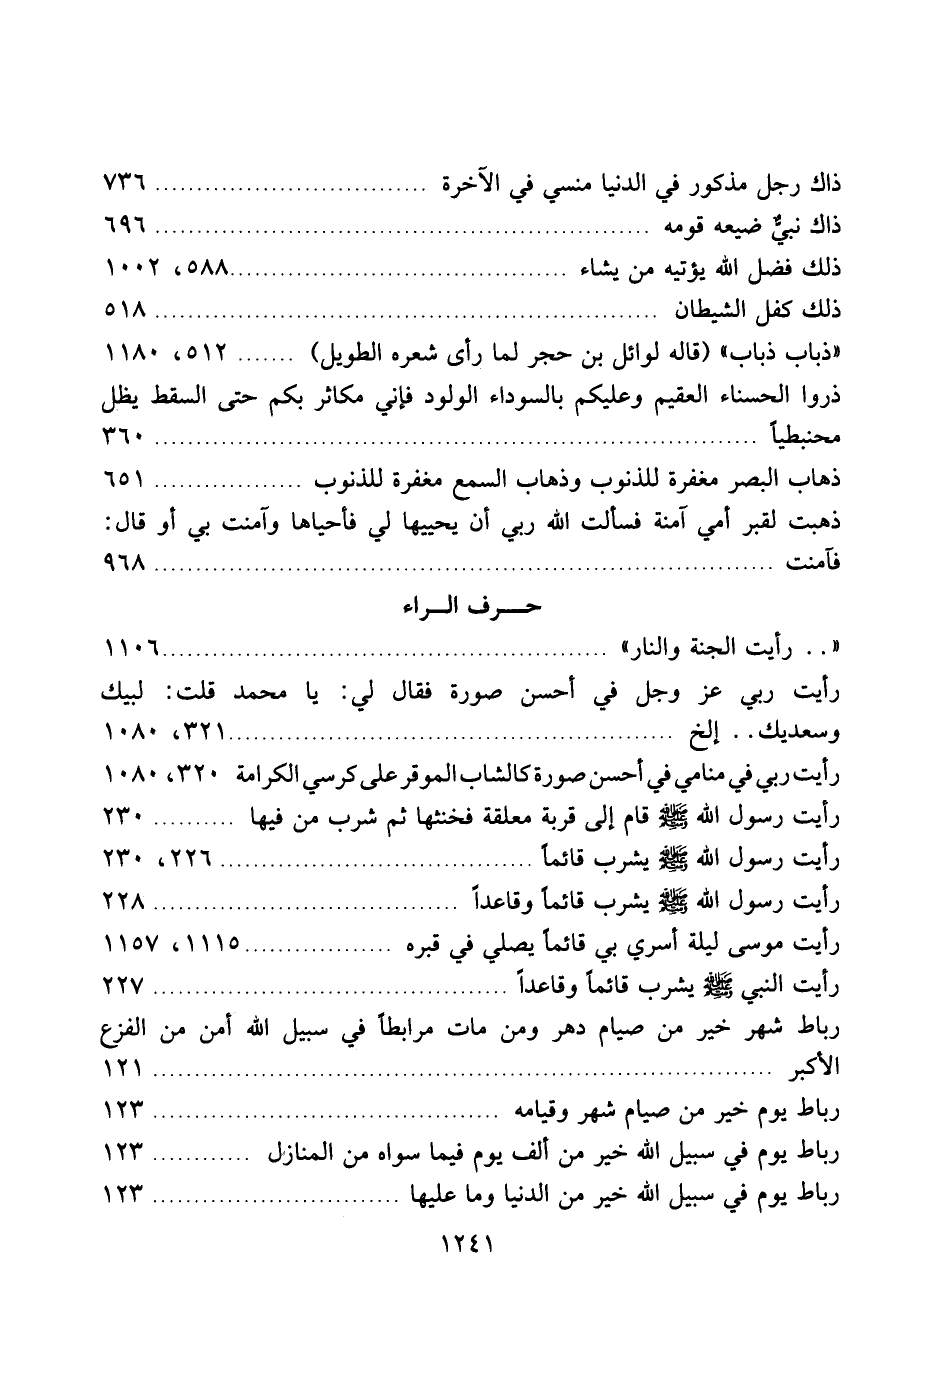 ذاك رجل مذكور في الدنيا منسي في الآخرة ................................. ٧٣٦
ذاك نبيٌّ ضيعه قومه ............................................................ ٦٩٦
ذلك فضل الله يؤتيه من يشاء .........................................٥٨٨، ١٠٠٢
ذلك كفل الشيطان ............................................................. ٥١٨
«ذباب ذباب» (قاله لوائل بن حجر لما رأى شعره الطويل) ....... ٥١٢، ١١٨٠
ذروا الحسناء العقيم وعليكم بالسوداء الولود فإني مكاثر بكم حتى السقط يظل
محنبطياً ......................................................................... ٣٦٠
ذهاب البصر مغفرة للذنوب وذهاب السمع مغفرة للذنوب .................. ٦٥١
ذهبت لقبر أمي آمنة فسألت الله ربي أن يحييها لي فأحياها وآمنت بي أو قال:
فآمنت ........................................................................... ٩٦٨
حـــرف الـــراء
«.. رأيت الجنة والنار» ......................................................١١٠٦
رأيت ربي عز وجل في أحسن صورة فقال لي: يا محمد قلت: لبيك
وسعديك.. إلخ ......................................................٣٢١، ١٠٨٠
رأيت ربي في منامي في أحسن صورة كالشاب الموقر على كرسي الكرامة ٣٢٠، ١٠٨٠
رأيت رسول الله ﷺ قام إلى قربة معلقة فخنثها ثم شرب من فيها .......... ٢٣٠
رأيت رسول الله ﷺ يشرب قائماً ...................................... ٢٢٦، ٢٣٠
رأيت رسول الله ﷺ يشرب قائماً وقاعداً ..................................... ٢٢٨
رأيت موسى ليلة أسري بي قائماً يصلي في قبره ..................١١١٥، ١١٥٧
رأيت النبي ﷺ يشرب قائماً وقاعداً ........................................... ٢٢٧
رباط شهر خير من صيام دهر ومن مات مرابطاً في سبيل الله أمن من الفزع
الأكبر ........................................................................... ١٢١
رباط يوم خير من صيام شهر وقيامه .......................................... ١٢٣
رباط يوم في سبيل الله خير من ألف يوم فيما سواه من المنازل ............ ١٢٣
رباط يوم في سبيل الله خير من الدنيا وما عليها .............................. ١٢٣
١٢٤١